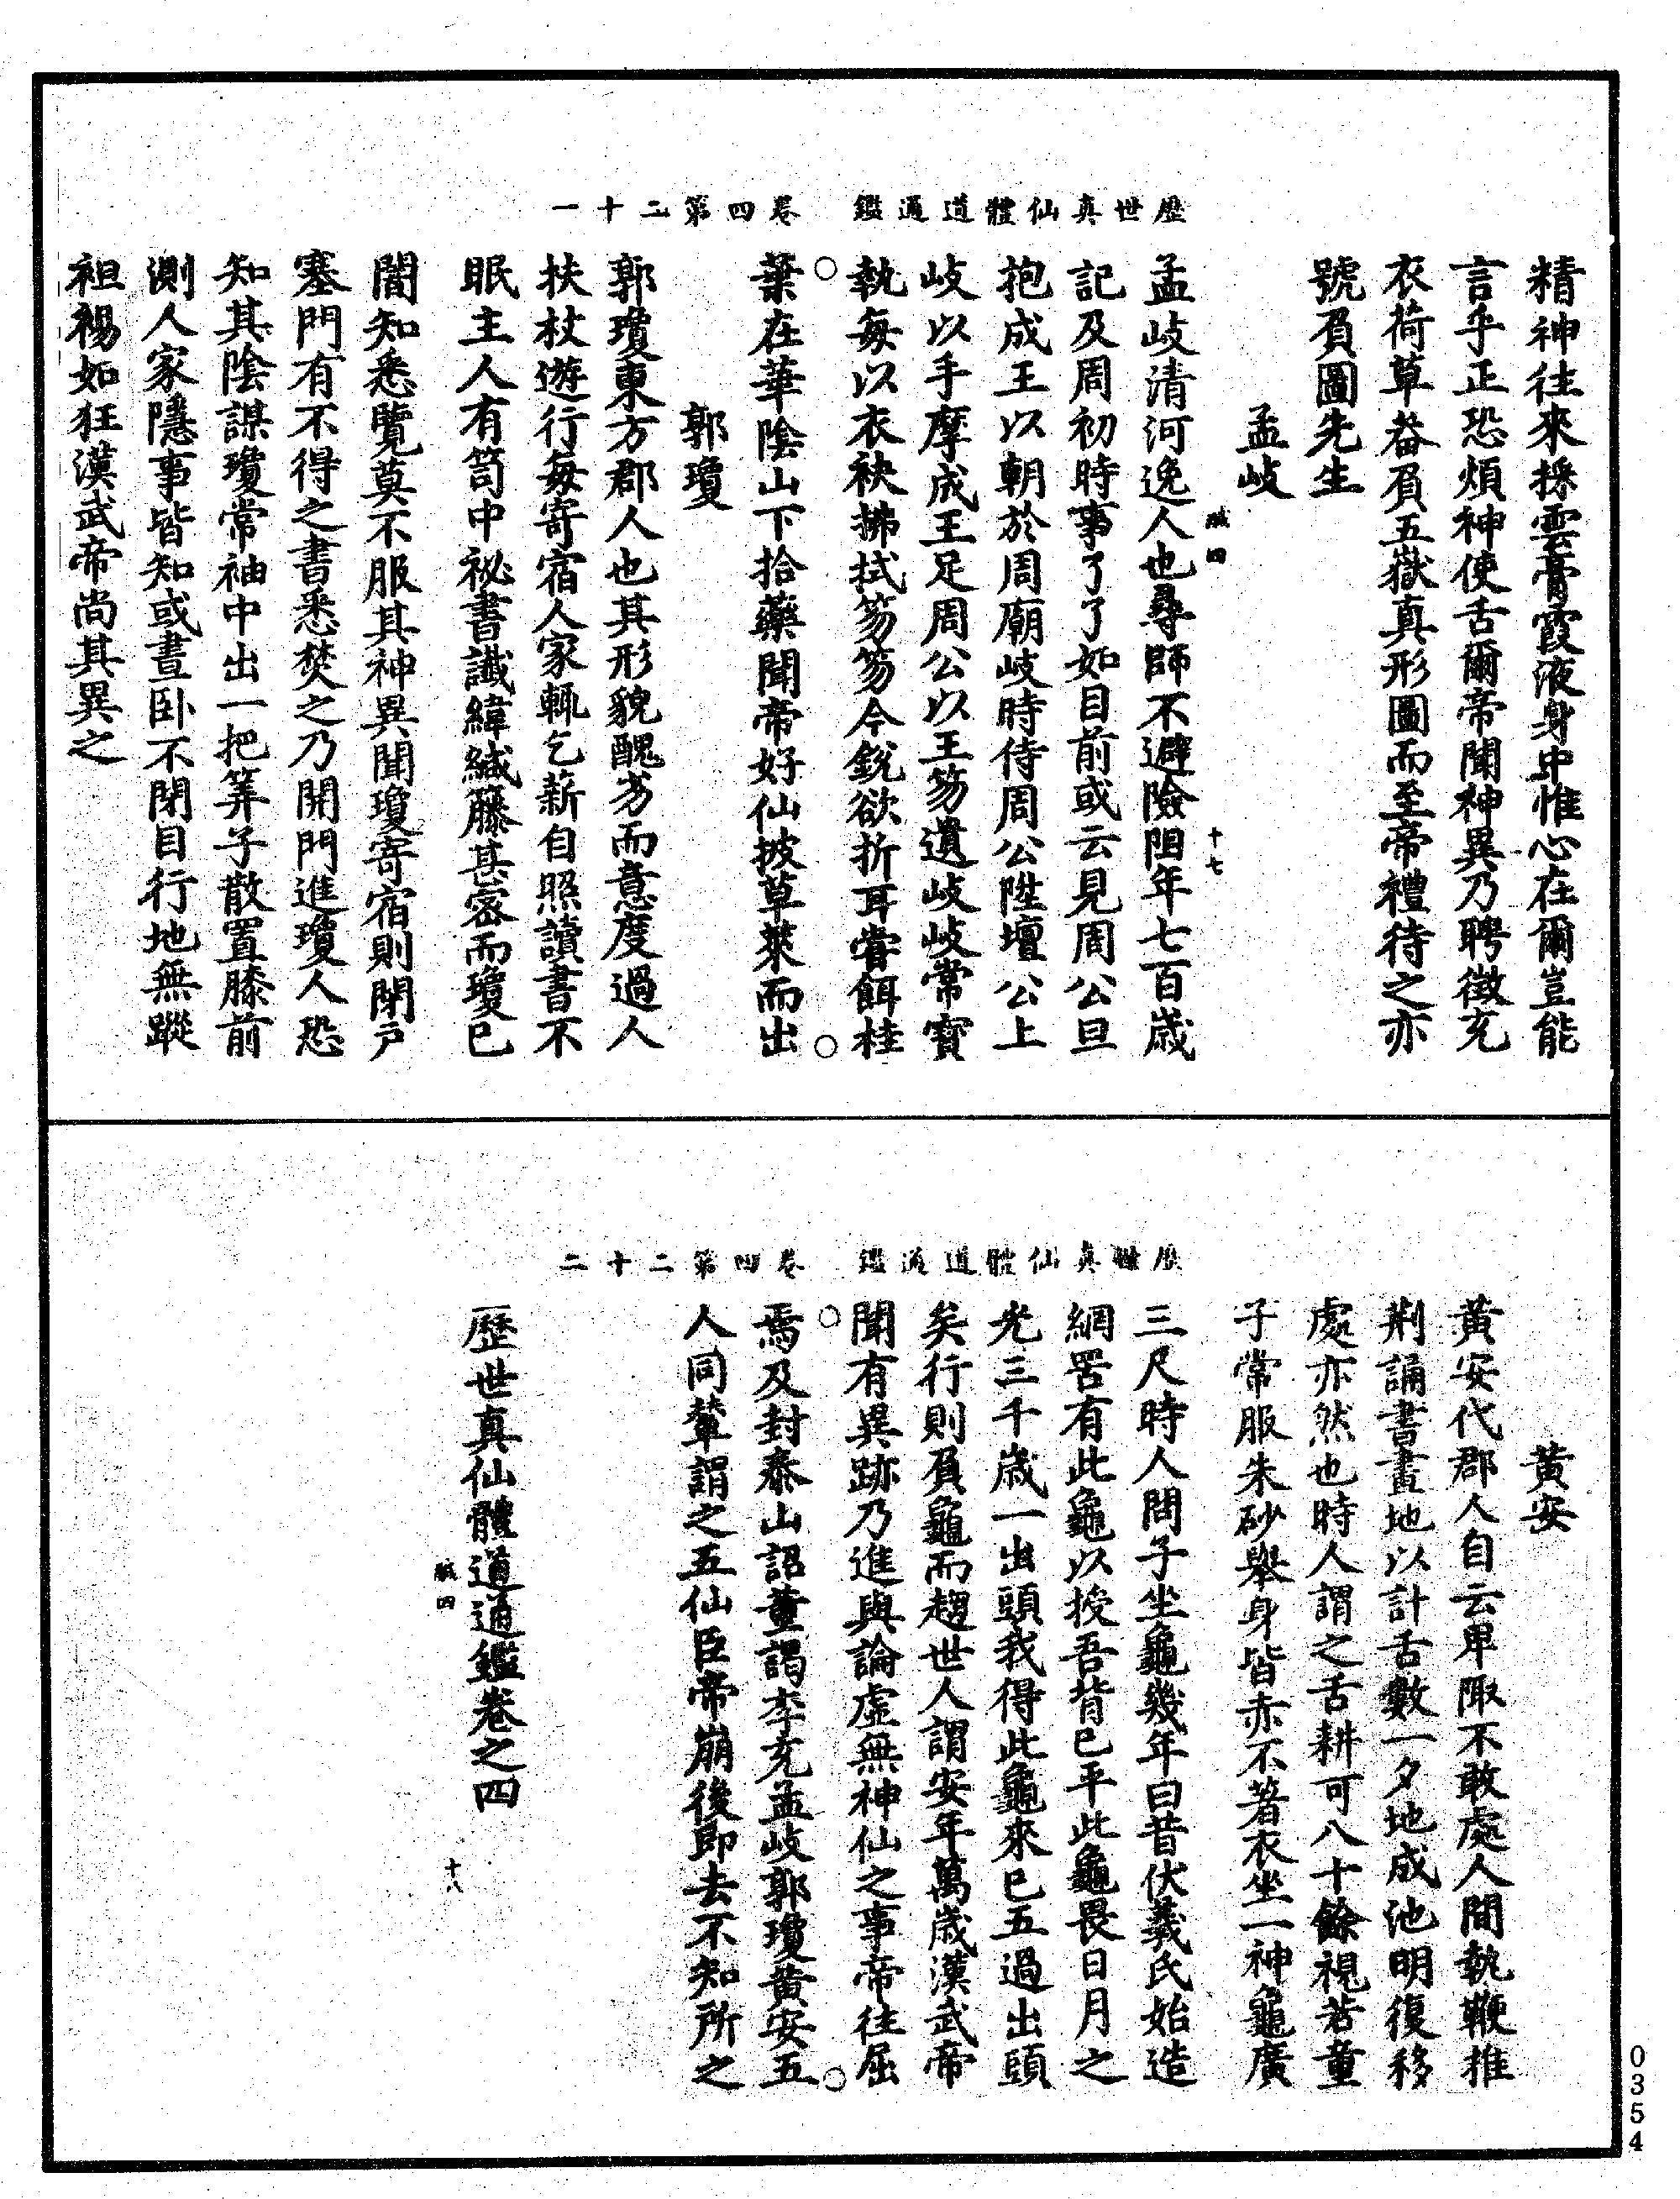 歷世真仙體道通鑑　卷四第二十一
精神往來採雲膏霞液身中惟心在爾豈能
言乎正恐煩神使舌爾帝聞神異乃聘徵充
衣荷草畚負五嶽真形圖而至帝禮待之亦
號負圖先生
孟岐
鹹四　十七
孟岐清河逸人也尋師不避險阻年七百歲
記及周初時事了了如目前或云見周公旦
抱成王以朝於周廟岐時侍周公陞壇公上
岐以手摩成王足周公以王笏遺岐岐常寶
執每以衣袂拂拭笏笏今銳欲折耳嘗餌桂
葉在華陰山下拾藥聞帝好仙披草萊而出
郭瓊
郭瓊東方郡人也其形貌醜劣而意度過人
扶杖遊行每寄宿人家輒乞薪自照讀書不
眠主人有笥中祕書讖緯緘籐甚密而瓊已
闇知悉覽莫不服其神異聞瓊寄宿則閉戶
塞門有不得之書悉焚之乃開門進瓊人恐
知其陰謀瓊常袖中出一把筭子散置膝前
測人家隱事皆知或晝卧不閉目行地無蹤
袒裼如狂漢武帝尚其異之
歷世真仙體道通鑑　卷四第二十二
黃安
黃安代郡人自云卑陬不敢處人間執鞭推
荆誦書畫地以計舌數一夕地成池明復移
處亦然也時人謂之舌耕可八十餘視若童
子常服朱砂舉身皆赤不著衣坐一神龜廣
三尺時人問子坐龜幾年曰昔伏羲氏始造
網罟有此龜以授吾背已平此龜畏日月之
光三千歲一出頭我得此龜來已五過出頭
矣行則負龜而趨世人謂安年萬歲漢武帝
聞有異跡乃進與論虛無神仙之事帝往屈
焉及封泰山詔董謁李充孟岐郭瓊黃安五
人同輦謂之五仙臣帝崩後即去不知所之
歷世真仙體道通鑑卷之四
鹹四　十八
0354